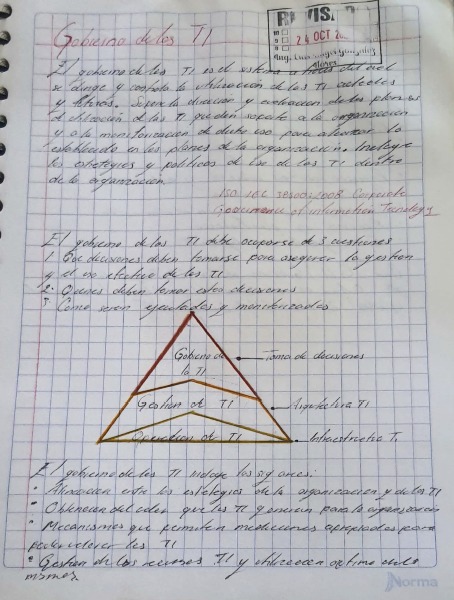 REVISADO
24 OCT 20
Gobierno de las TI
El gobierno de las TI es el sistema a traves del cual
se dirige y controla la utilización de las TI actuales
y futuras. Supone la dirección y evaluación de los planes
de utilización de las TI que den soporte a la organización
y a la monitorización de dicho uso para alcanzar lo
establecido en los planes de la organización. Incluye
las estrategias y políticas de uso de las TI dentro
de la organización.
ISO IEC 38500:2008 Corporate
Governance of information Tecnology
El gobierno de las TI debe ocuparse de 3 cuestiones
1. Que decisiones deben tomarse para asegurar la gestion
y el uso efectivo de las TI.
2. Quienes deben tomar estas decisiones
3. Como seran ejecutadas y monitorizadas
Gobierno de
la TI
Toma de decisiones
Gestion de TI
Arquitectura TI
Operacion de TI
Infraestructura T.
El gobierno de las TI incluye las sig areas:
• Alineacion entre las estrategias de la organizacion y de las TI
• Obtencion del valor que las TI generan para la organizacion
• Mecanismos que permiten mediciones apropiadas para
poder valorar las TI
• Gestion de los recursos TI y utilizacion optima de los
mismos
Norma